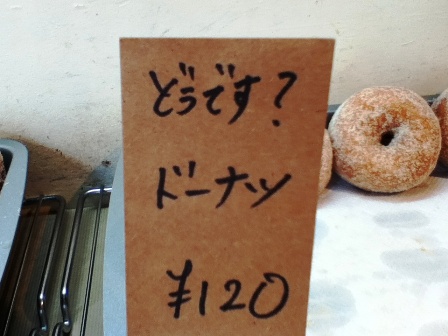 どうです？
ドーナツ
¥120